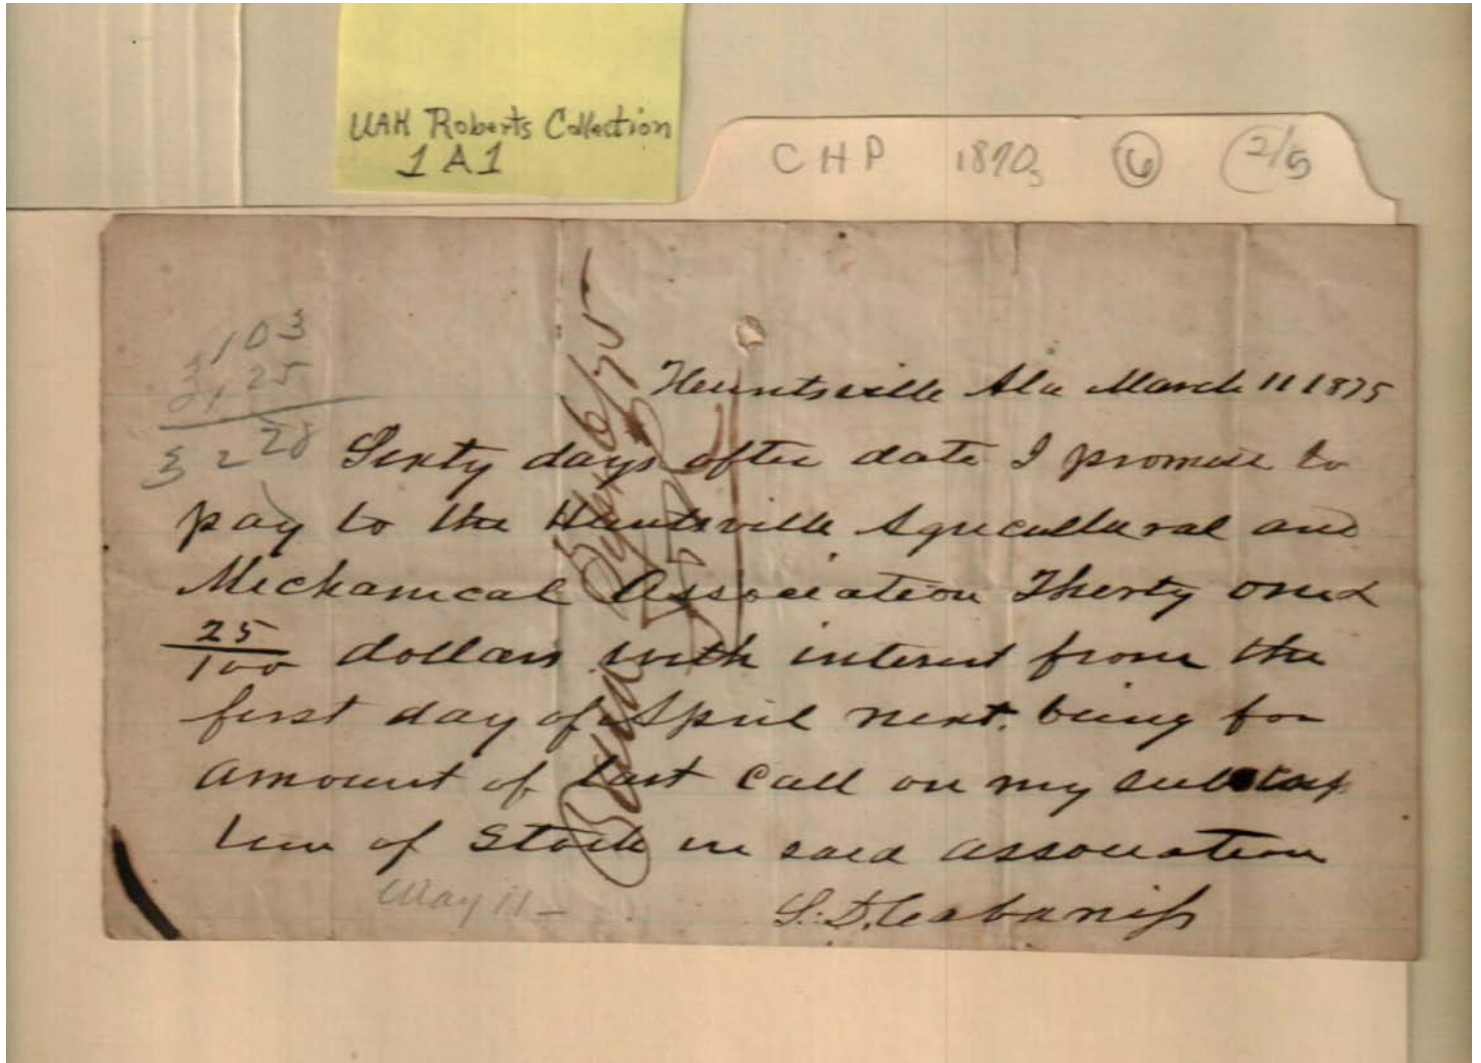 UAH Roberts Collection
1A1
CHP 1870s 6 2/5
103
31 25
32 28
Huntsville Ala March 11 1875
Sixty days after date I promise to
pay to the Huntsville Agricultural and
Mechanical Association Thirty one &
25/100 dollars with interest from the
first day of April next. being for
amount of last call on my subscrip
tion of Stock in said association
S. D. Cabaniss
May 11 -